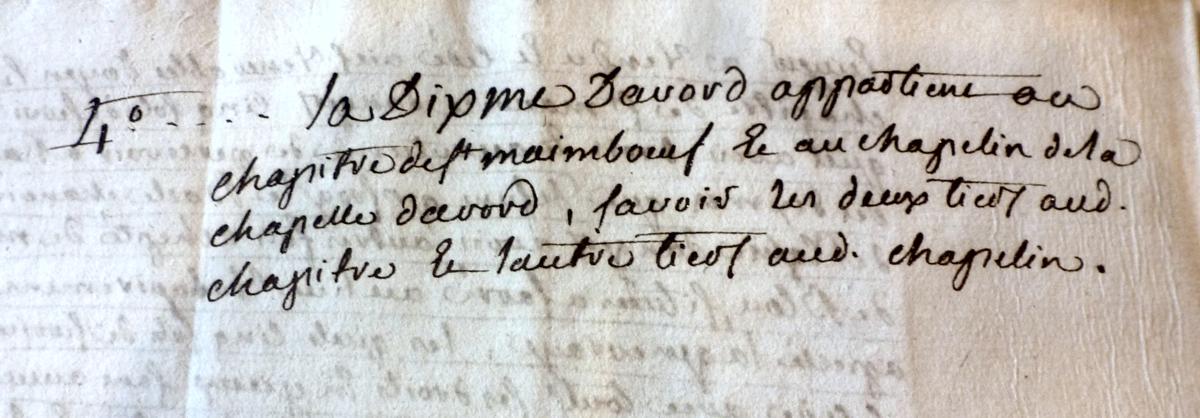 4° - - - - la Dixme Davord appartient au
chapitre de st maimboeuf Et au chapelin de la
chapelle davord, savoir les deux tiers aud.
chapitre Et lautre tiers aud. chapelin.